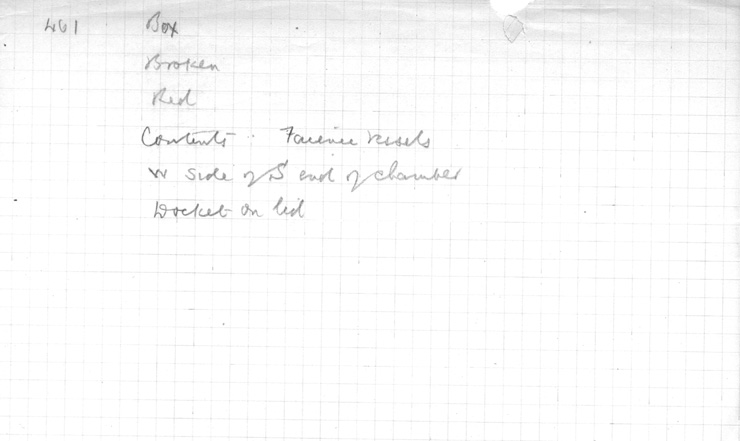 461 Box
Broken
Red
Contents : Faience vessels
W side of S end of chamber
Docket on lid